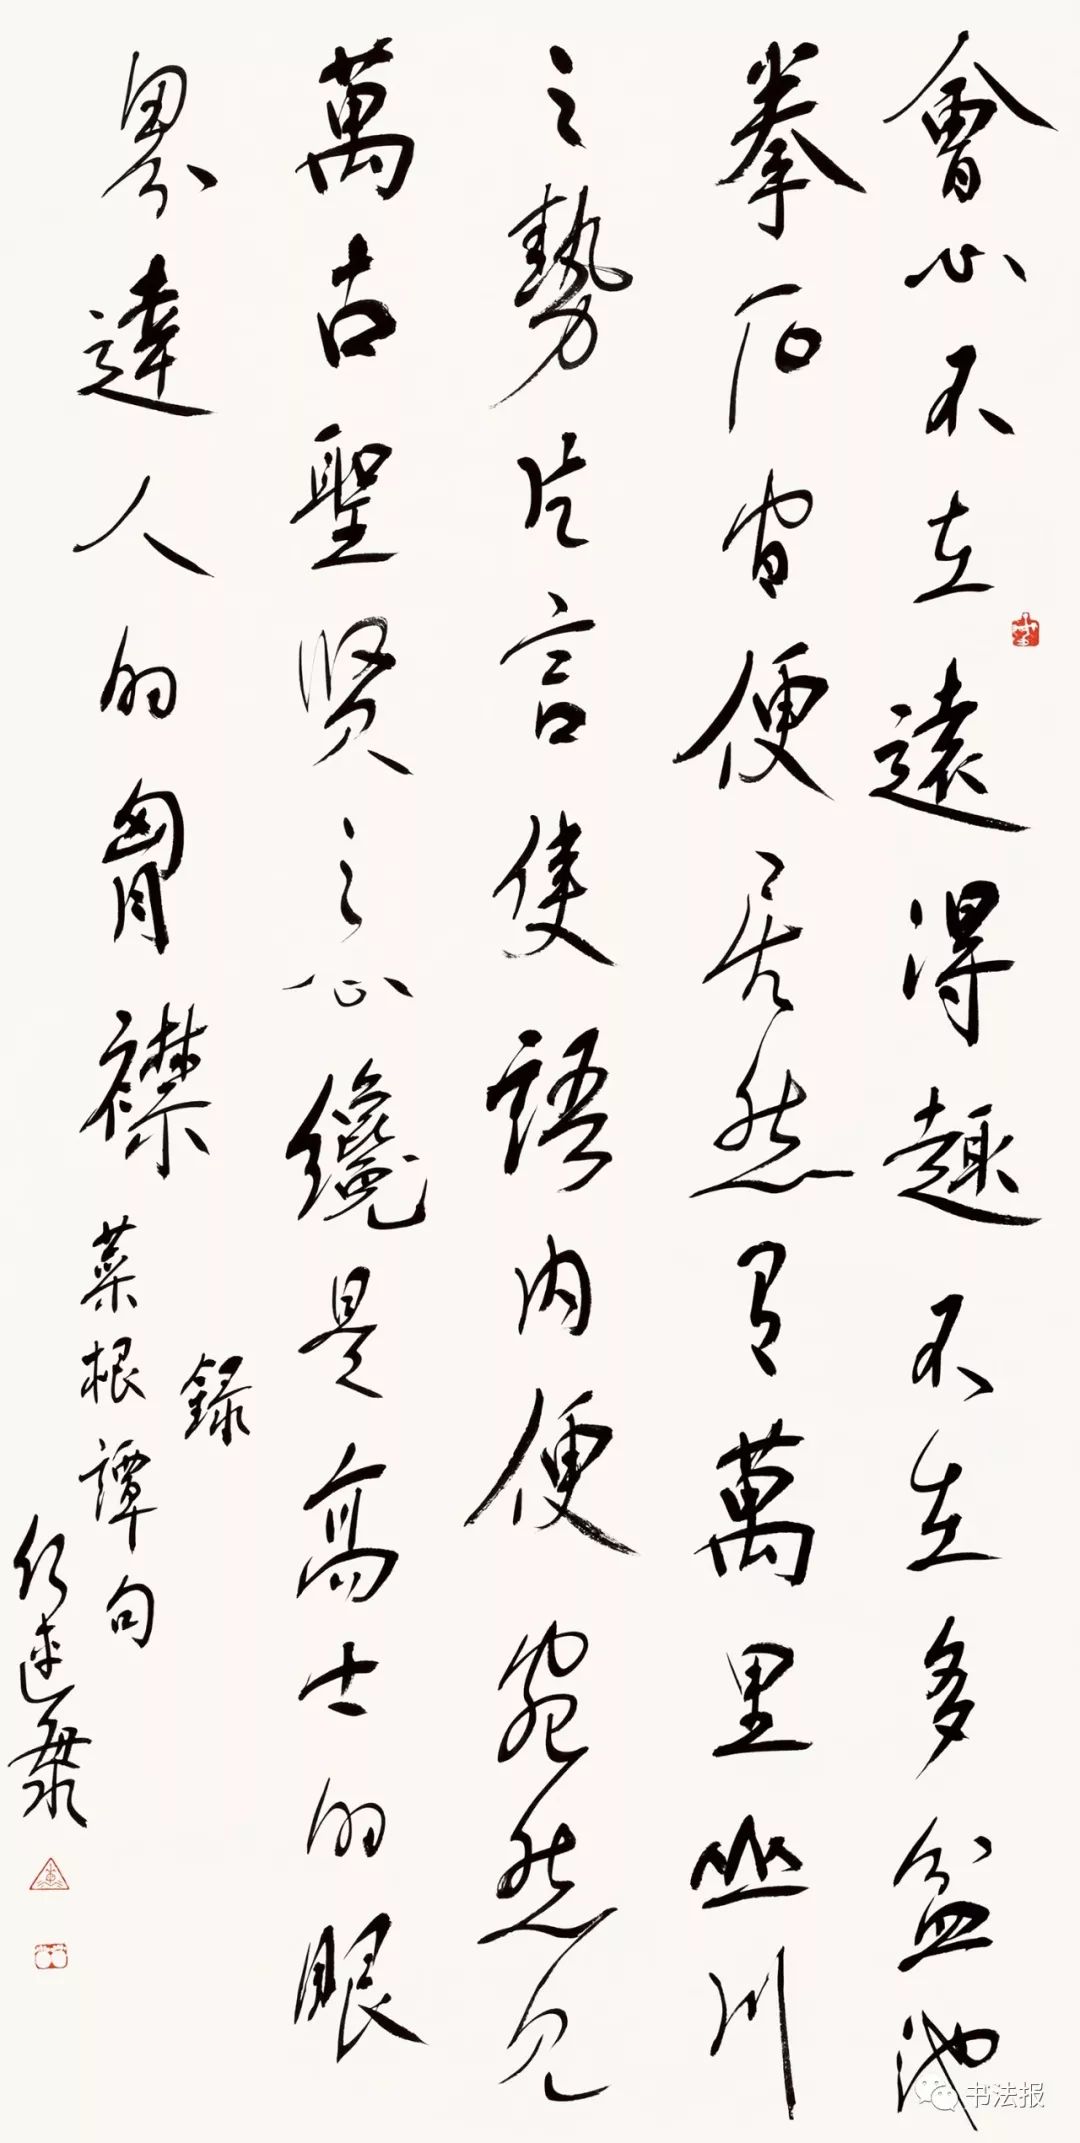 會心不在遠得趣不在多盆池
拳石間便居然有萬里山川
之勢片言隻語内便宛然見
萬古聖賢之心纔是高士的眼
界達人的胷襟
錄
菜根譚句
书法报